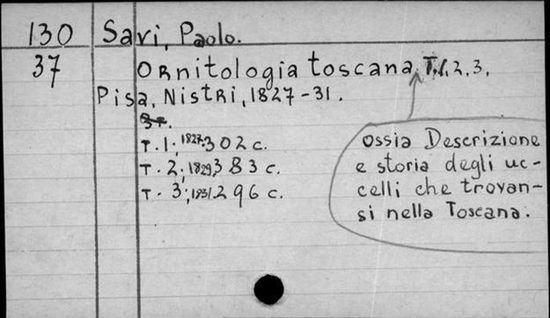 130 Savi, Paolo.
37 Ornitologia toscana, T. 1, 2, 3,
Pisa, Nistri, 1827-31.
37.
T. 1; 1827. 302 c.
T. 2; 1829, 383 c.
T. 3; 1831. 296 c.
ossia Descrizione
e storia degli uc-
celli che trovan-
si nella Toscana.